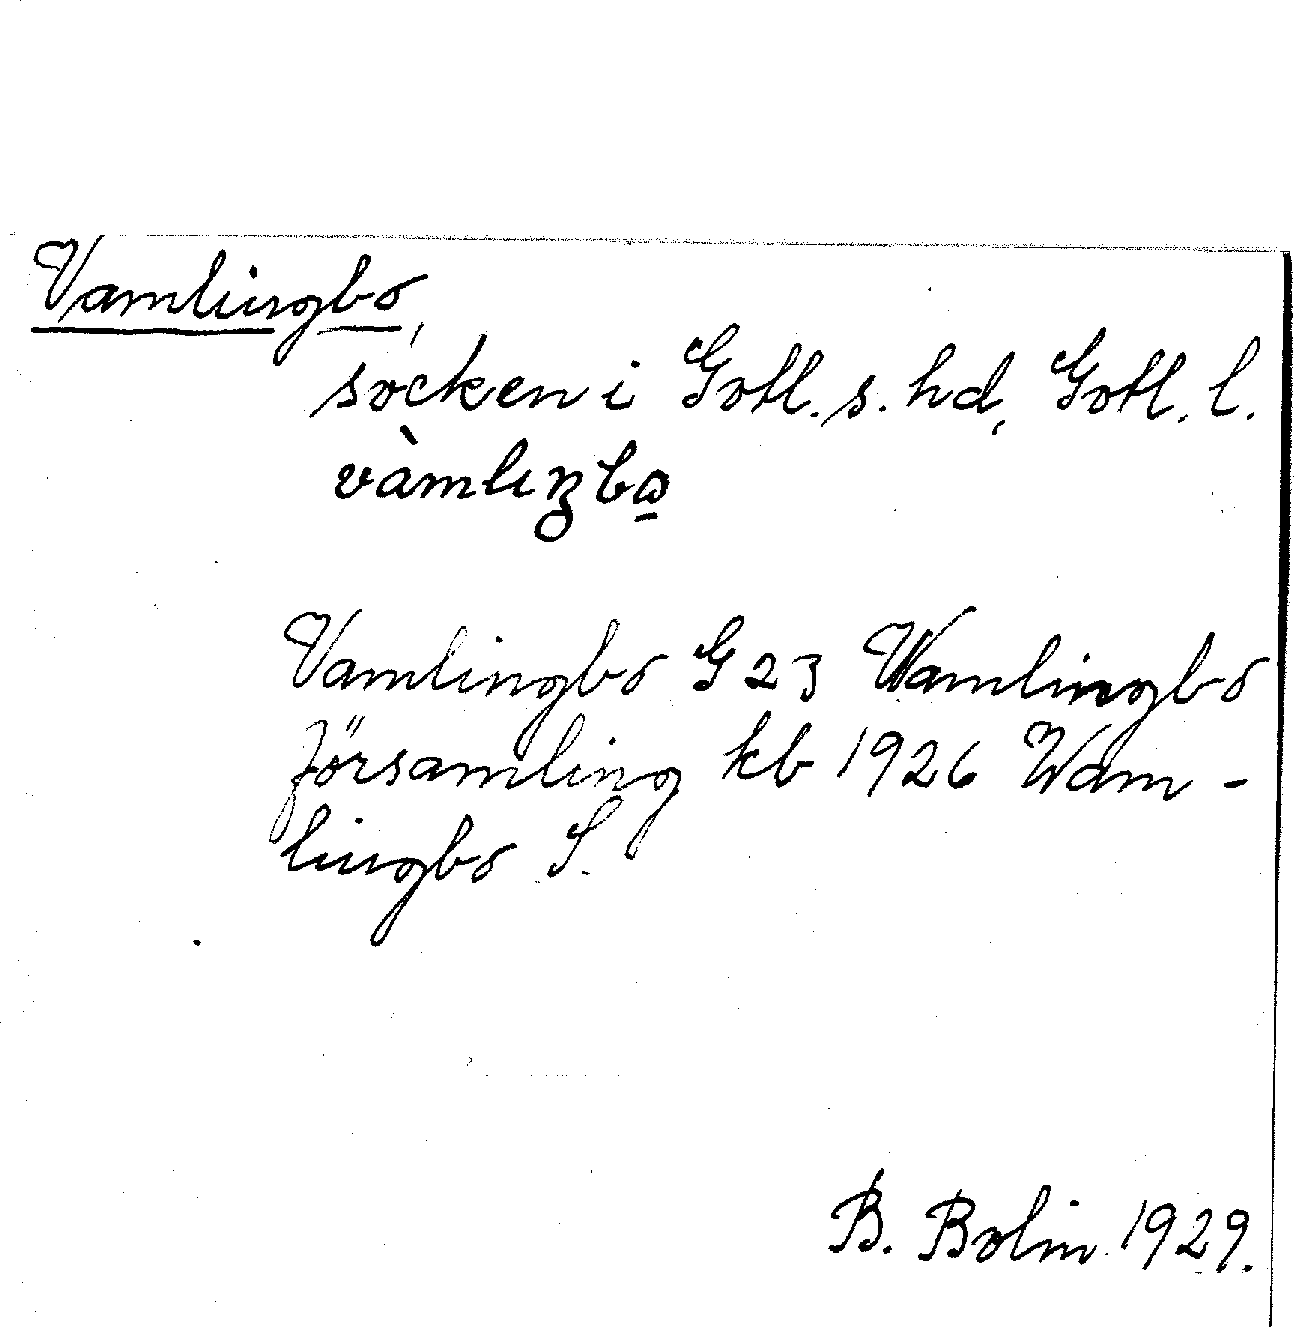 Vamlingbo,
socken i Gotl. s. hd, Gotl. l.
Vamlingbo G 23 Wamlingbo
församling kb 1926 Wam-
lingbo S.
B. Bolin 1929.